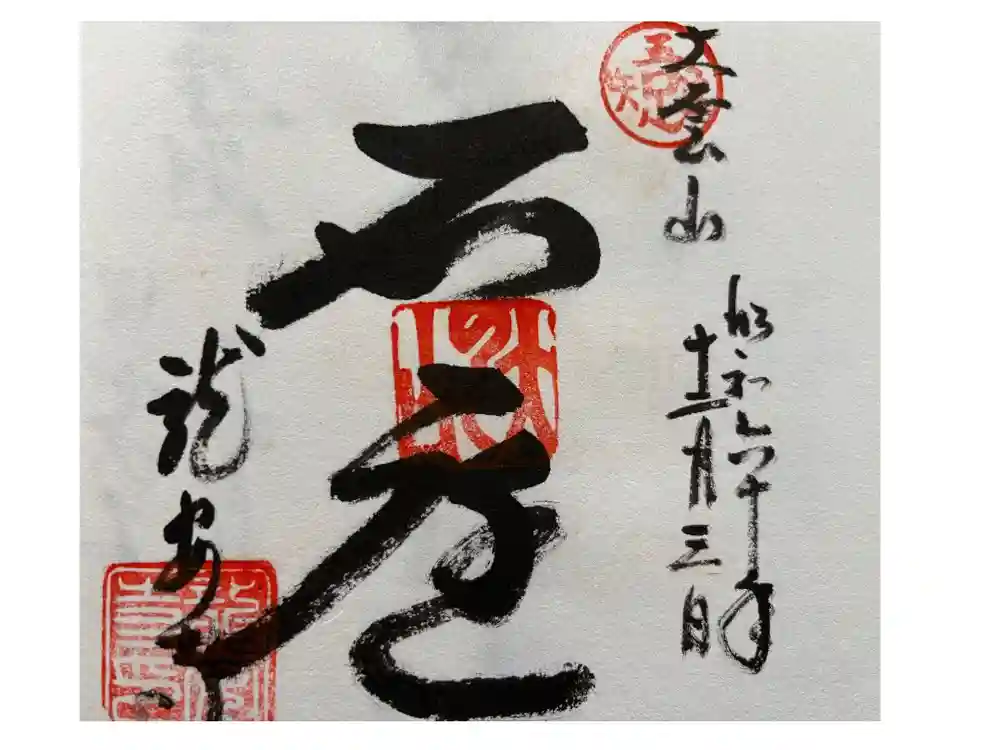 大雲山
昭和六十年
十二月三日
石庭
龍安寺